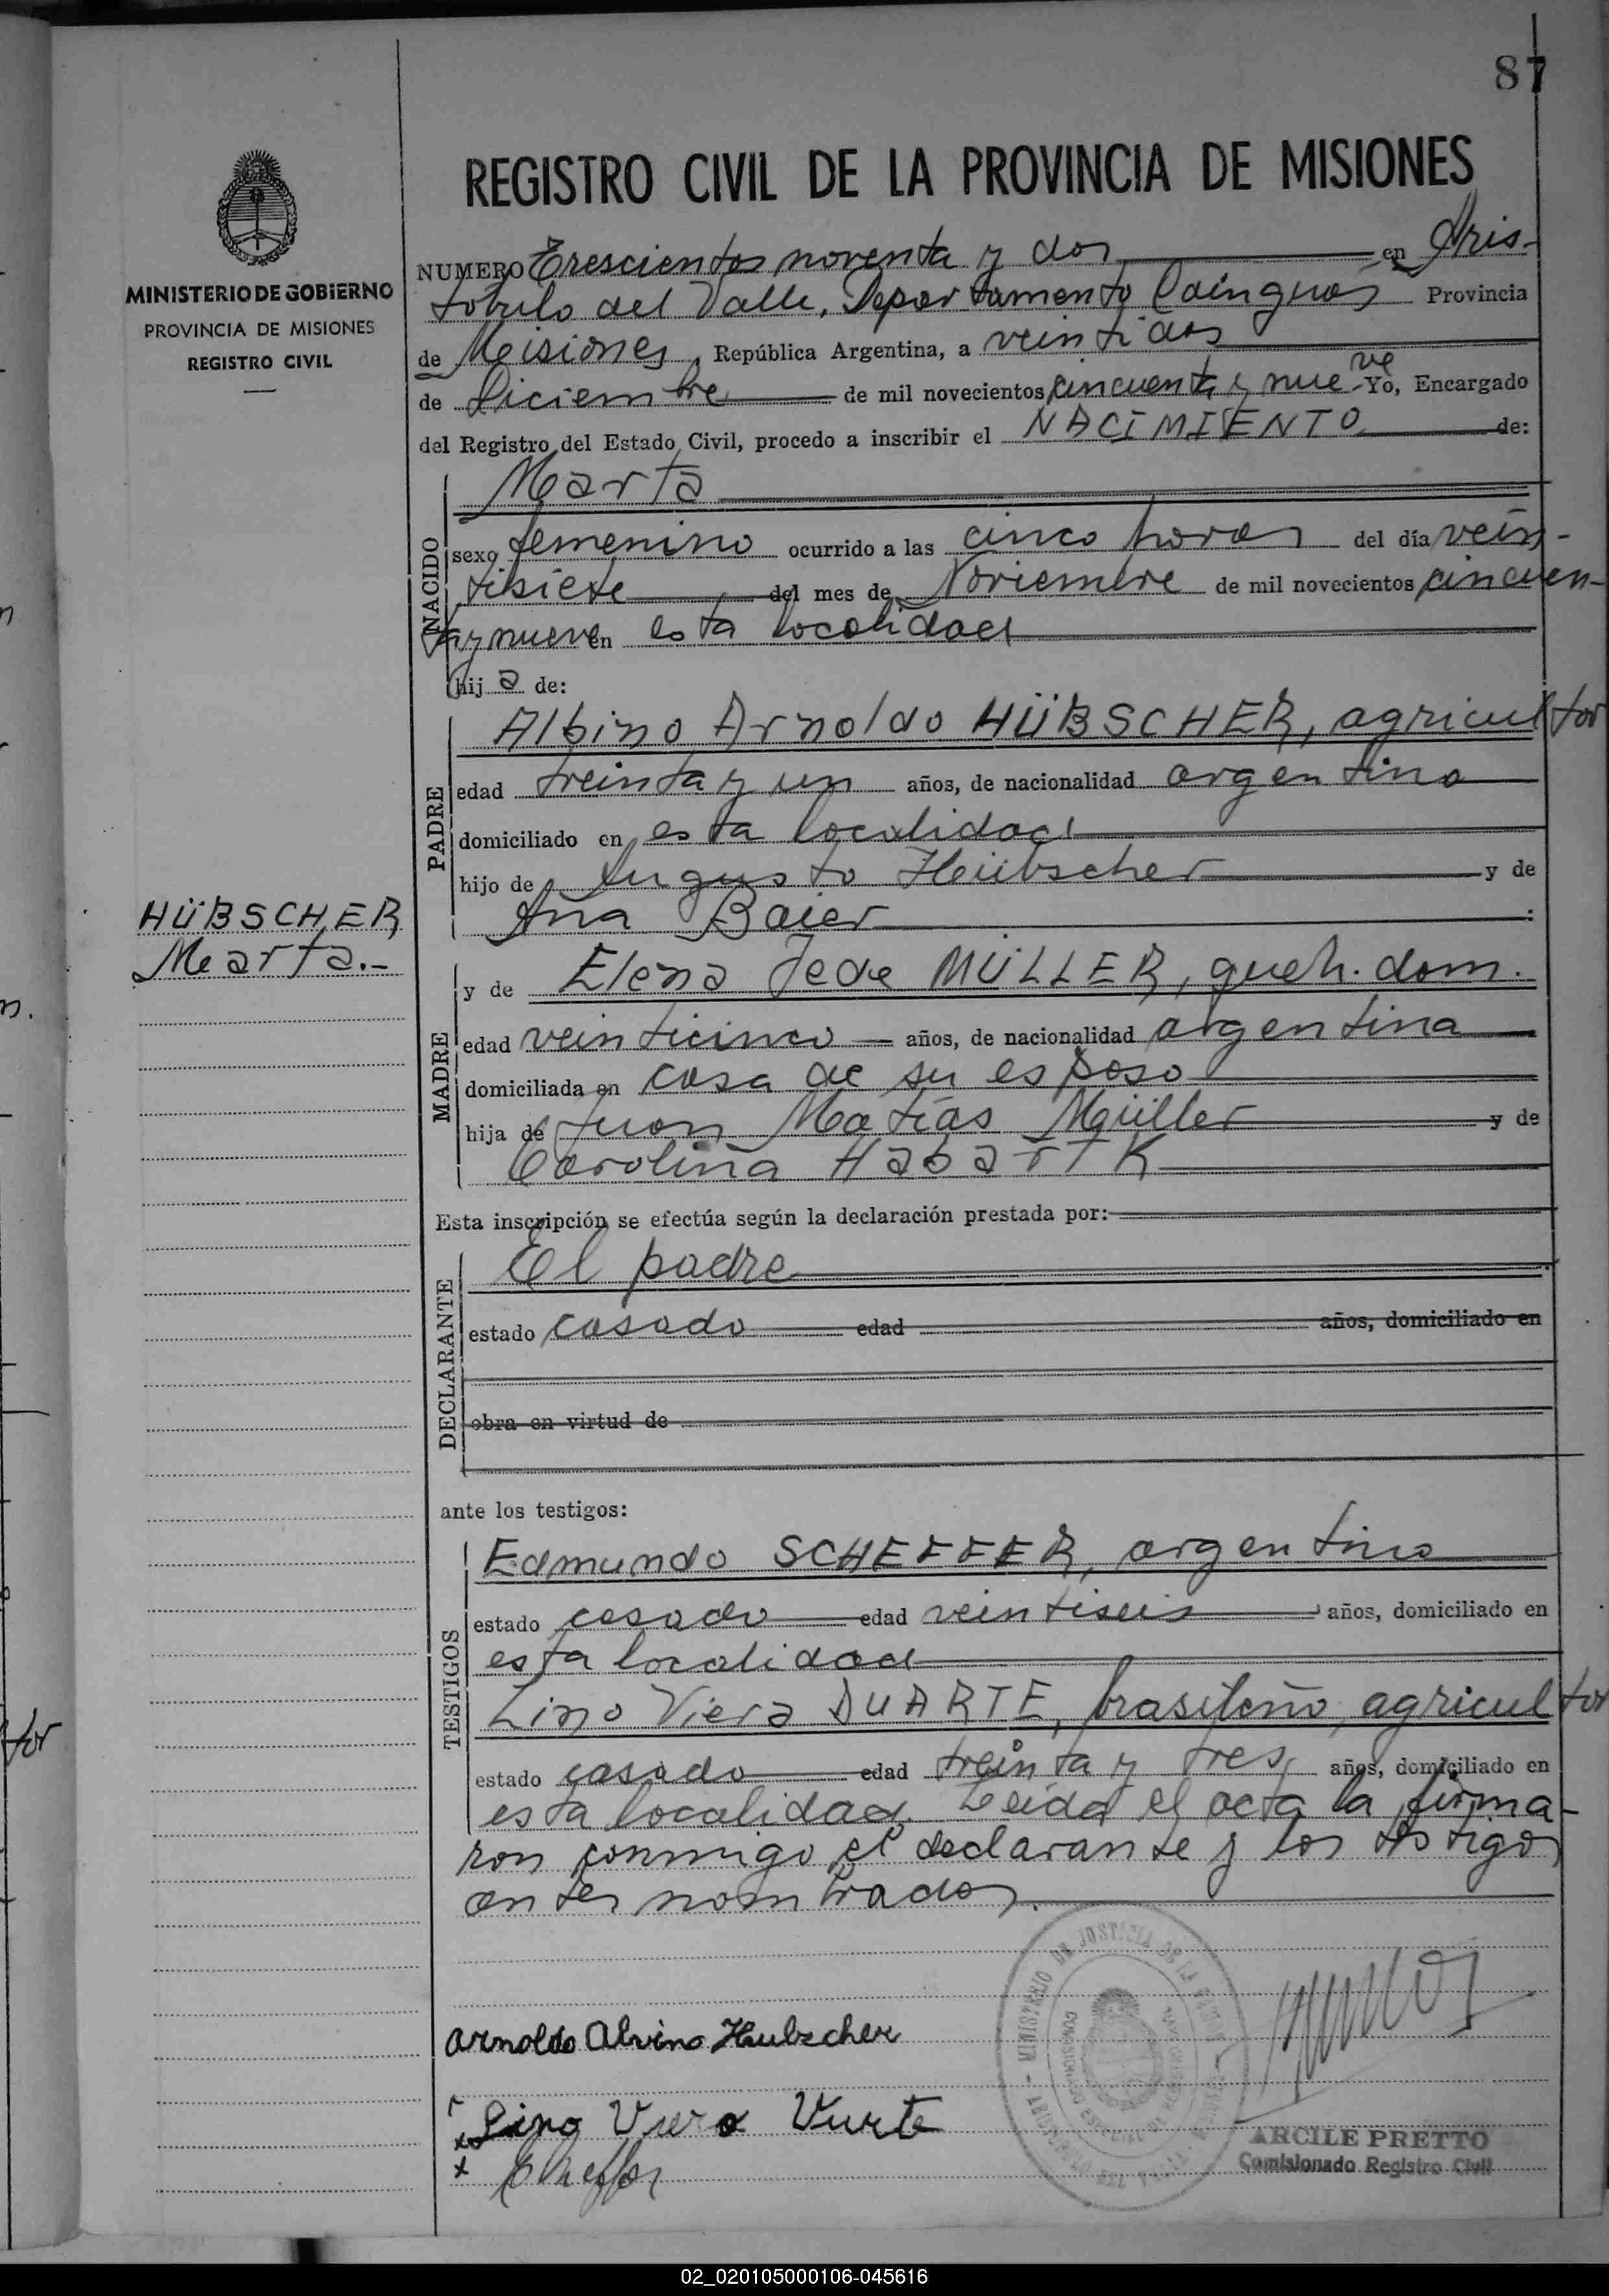 87
MINISTERIO DE GOBIERNO
PROVINCIA DE MISIONES
REGISTRO CIVIL
REGISTRO CIVIL DE LA PROVINCIA DE MISIONES
NUMERO Trescientos noventa y dos en Aris-
tóbulo del Valle, Departamento Cainguás Provincia
de Misiones, República Argentina, a veintidos
de Diciembre de mil novecientos cincuenta y nueve Yo, Encargado
del Registro del Estado Civil, procedo a inscribir el NACIMIENTO de:
NACIDO
Marta
sexo femenino ocurrido a las cinco horas del día vein-
tisiete del mes de Noviembre de mil novecientos cincuen-
ta y nueve en esta localidad
hij a de:
PADRE
Albino Arnoldo HÜBSCHER, agricultor
edad treinta y un años, de nacionalidad argentina
domiciliado en esta localidad
hijo de Augusto Hübscher y de
Ana Baier
HÜBSCHER
Marta.-
MADRE
y de Elena MÜLLER, queh. dom.
edad veinticinco años, de nacionalidad argentina
domiciliada en casa de su esposo
hija de Juan Matías Müller y de
Carolina
Esta inscripción se efectúa según la declaración prestada por:
DECLARANTE
El padre
estado casado edad años, domiciliado en
obra en virtud de
ante los testigos:
TESTIGOS
Edmundo SCHEFFER, argentino
estado casado edad veintiseis años, domiciliado en
esta localidad
Lino Viera DUARTE, brasileño, agricultor
estado casado edad treinta y tres años, domiciliado en
esta localidad. Leida el acta la firma-
ron conmigo el declarante y los testigos
antes nombrados.
Arnoldo Alvino Hubscher
Lino Viera
ARCILE PRETTO
Comisionado Registro Civil
02_020105000106-045616